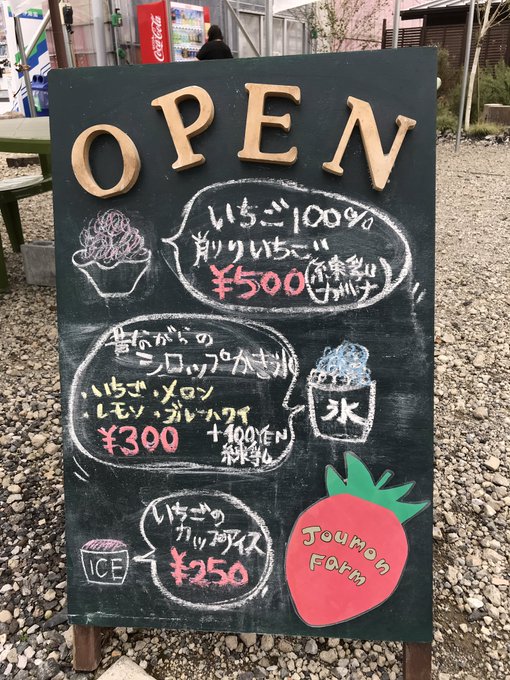 Coca-Cola
OPEN
いちご100%
削りいちご
¥500
練乳
昔ながらの
シロップかき氷
・いちご・メロン
・レモン・ブルーハワイ
¥300
+100YEN
練乳
氷
いちごの
カップアイス
¥250
ICE
Joumon
Farm